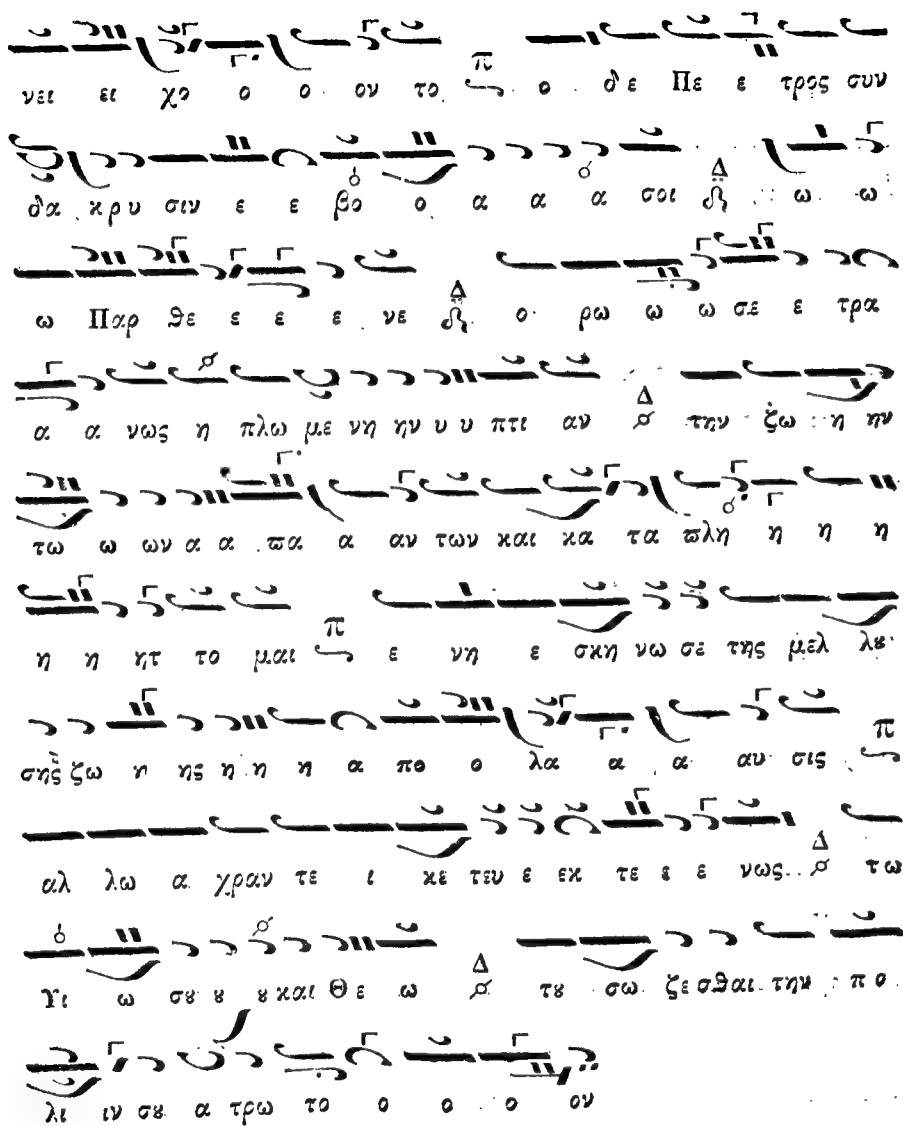 νει ει χο ο ο ον το π ο δε Πε ε τρος συν
δα κρυ σιν ε ε βο ο α α α σοι Δ ω ω
ω Παρ θε ε ε ε νε Δ ο ρω ω ω σε ε τρα
α α νως η πλω με νη ην υ υ πτι αν Δ την ζω η ην
τω ω ων α α πα α αν των και κα τα πλη η η η
η η ητ το μαι π ε νη ε σκη νω σε της μελ λȣ
σης ζω η ης η η η α πο ο λα α α αυ σις π
αλ λω α χραν τε ι κε τευ ε εκ τε ε ε νως Δ τω
Υι ω σȣ ȣ ȣ και Θε ω Δ τȣ σω ζεσθαι την πο
λι ιν σȣ α τρω το ο ο ο ον